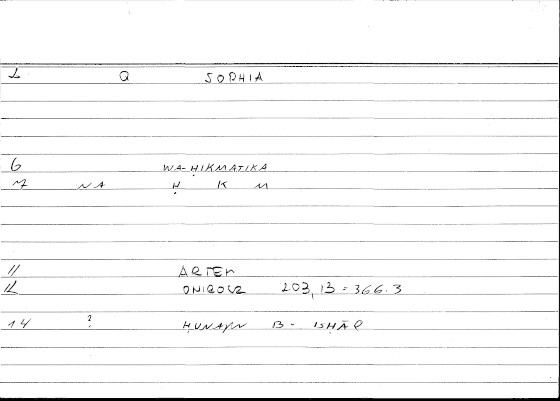 1 Q SOPHIA
6 WA-ḤIKMATIKA
7 NA Ḥ K M
11 ARTEM
12 ONIROCR 203,13 = 366.3
14 ? ḤUNAYN B- ISḤĀQ